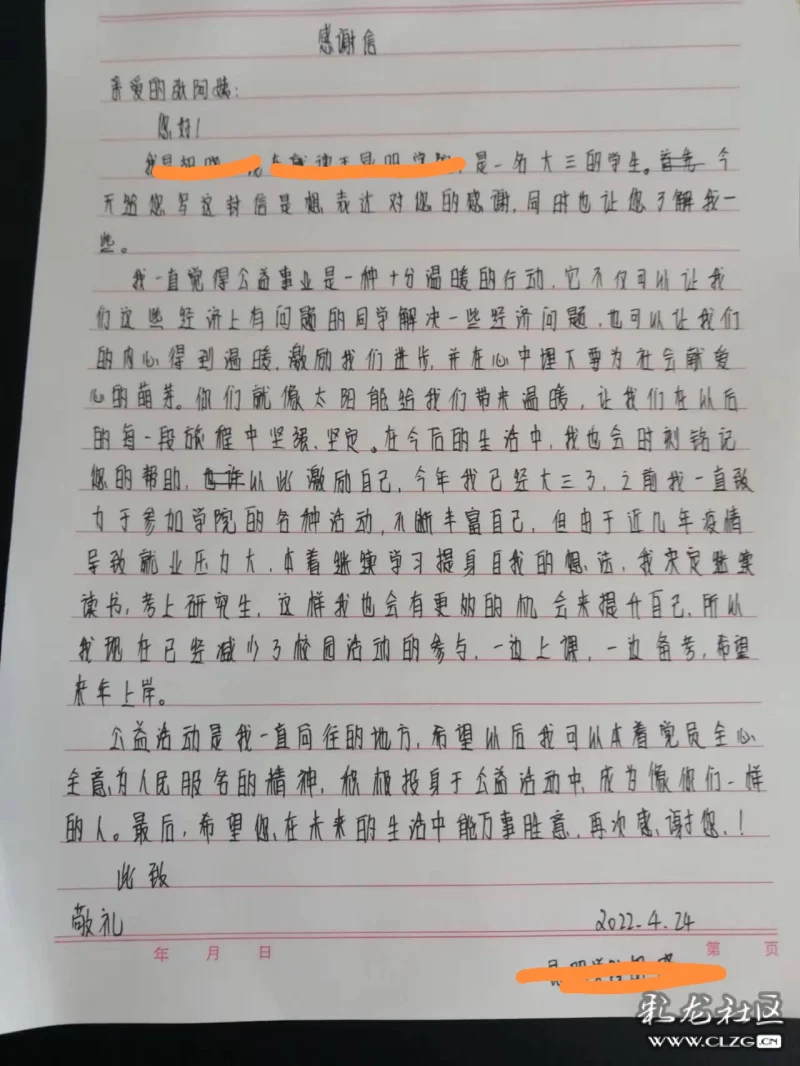 感谢信
亲爱的张阿姨：
您好！
我是 是一名大三的学生。首先 今
天给您写这封信是想表达对您的感谢，同时也让您了解我一
些。
我一直觉得公益事业是一种十分温暖的行动，它不仅可以让我
们这些经济上有问题的同学解决一些经济问题，也可以让我们
的内心得到温暖，激励我们进步，并在心中埋下要为社会献爱
心的萌芽。你们就像太阳能给我们带来温暖，让我们在以后
的每一段旅程中坚强、坚定。在今后的生活中，我也会时刻铭记
您的帮助，也许以此激励自己，今年我已经大三了，之前我一直致
力于参加学院的各种活动，不断丰富自己，但由于近几年疫情
导致就业压力大，本着继续学习提身自我的想法，我决定继续
读书，考上研究生，这样我也会有更多的机会来提升自己，所以
我现在已经减少了校园活动的参与，一边上课，一边备考，希望
来年上岸。
公益活动是我一直向往的地方，希望以后我可以本着党员全心
全意为人民服务的精神，积极投身于公益活动中，成为像你们一样
的人。最后，希望您在未来的生活中能万事胜意，再次感谢您！
此致
敬礼
2022.4.24
年 月 日 第 页
彩龙社区
WWW.CLZG.CN